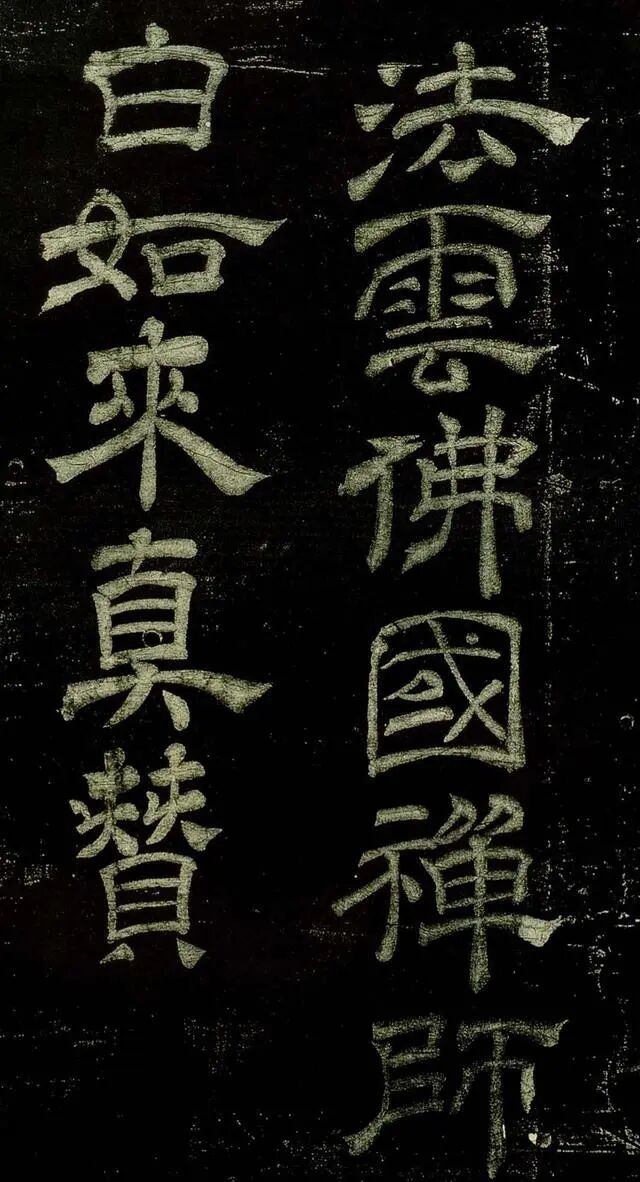 法雲佛國禪師
白如來真贊